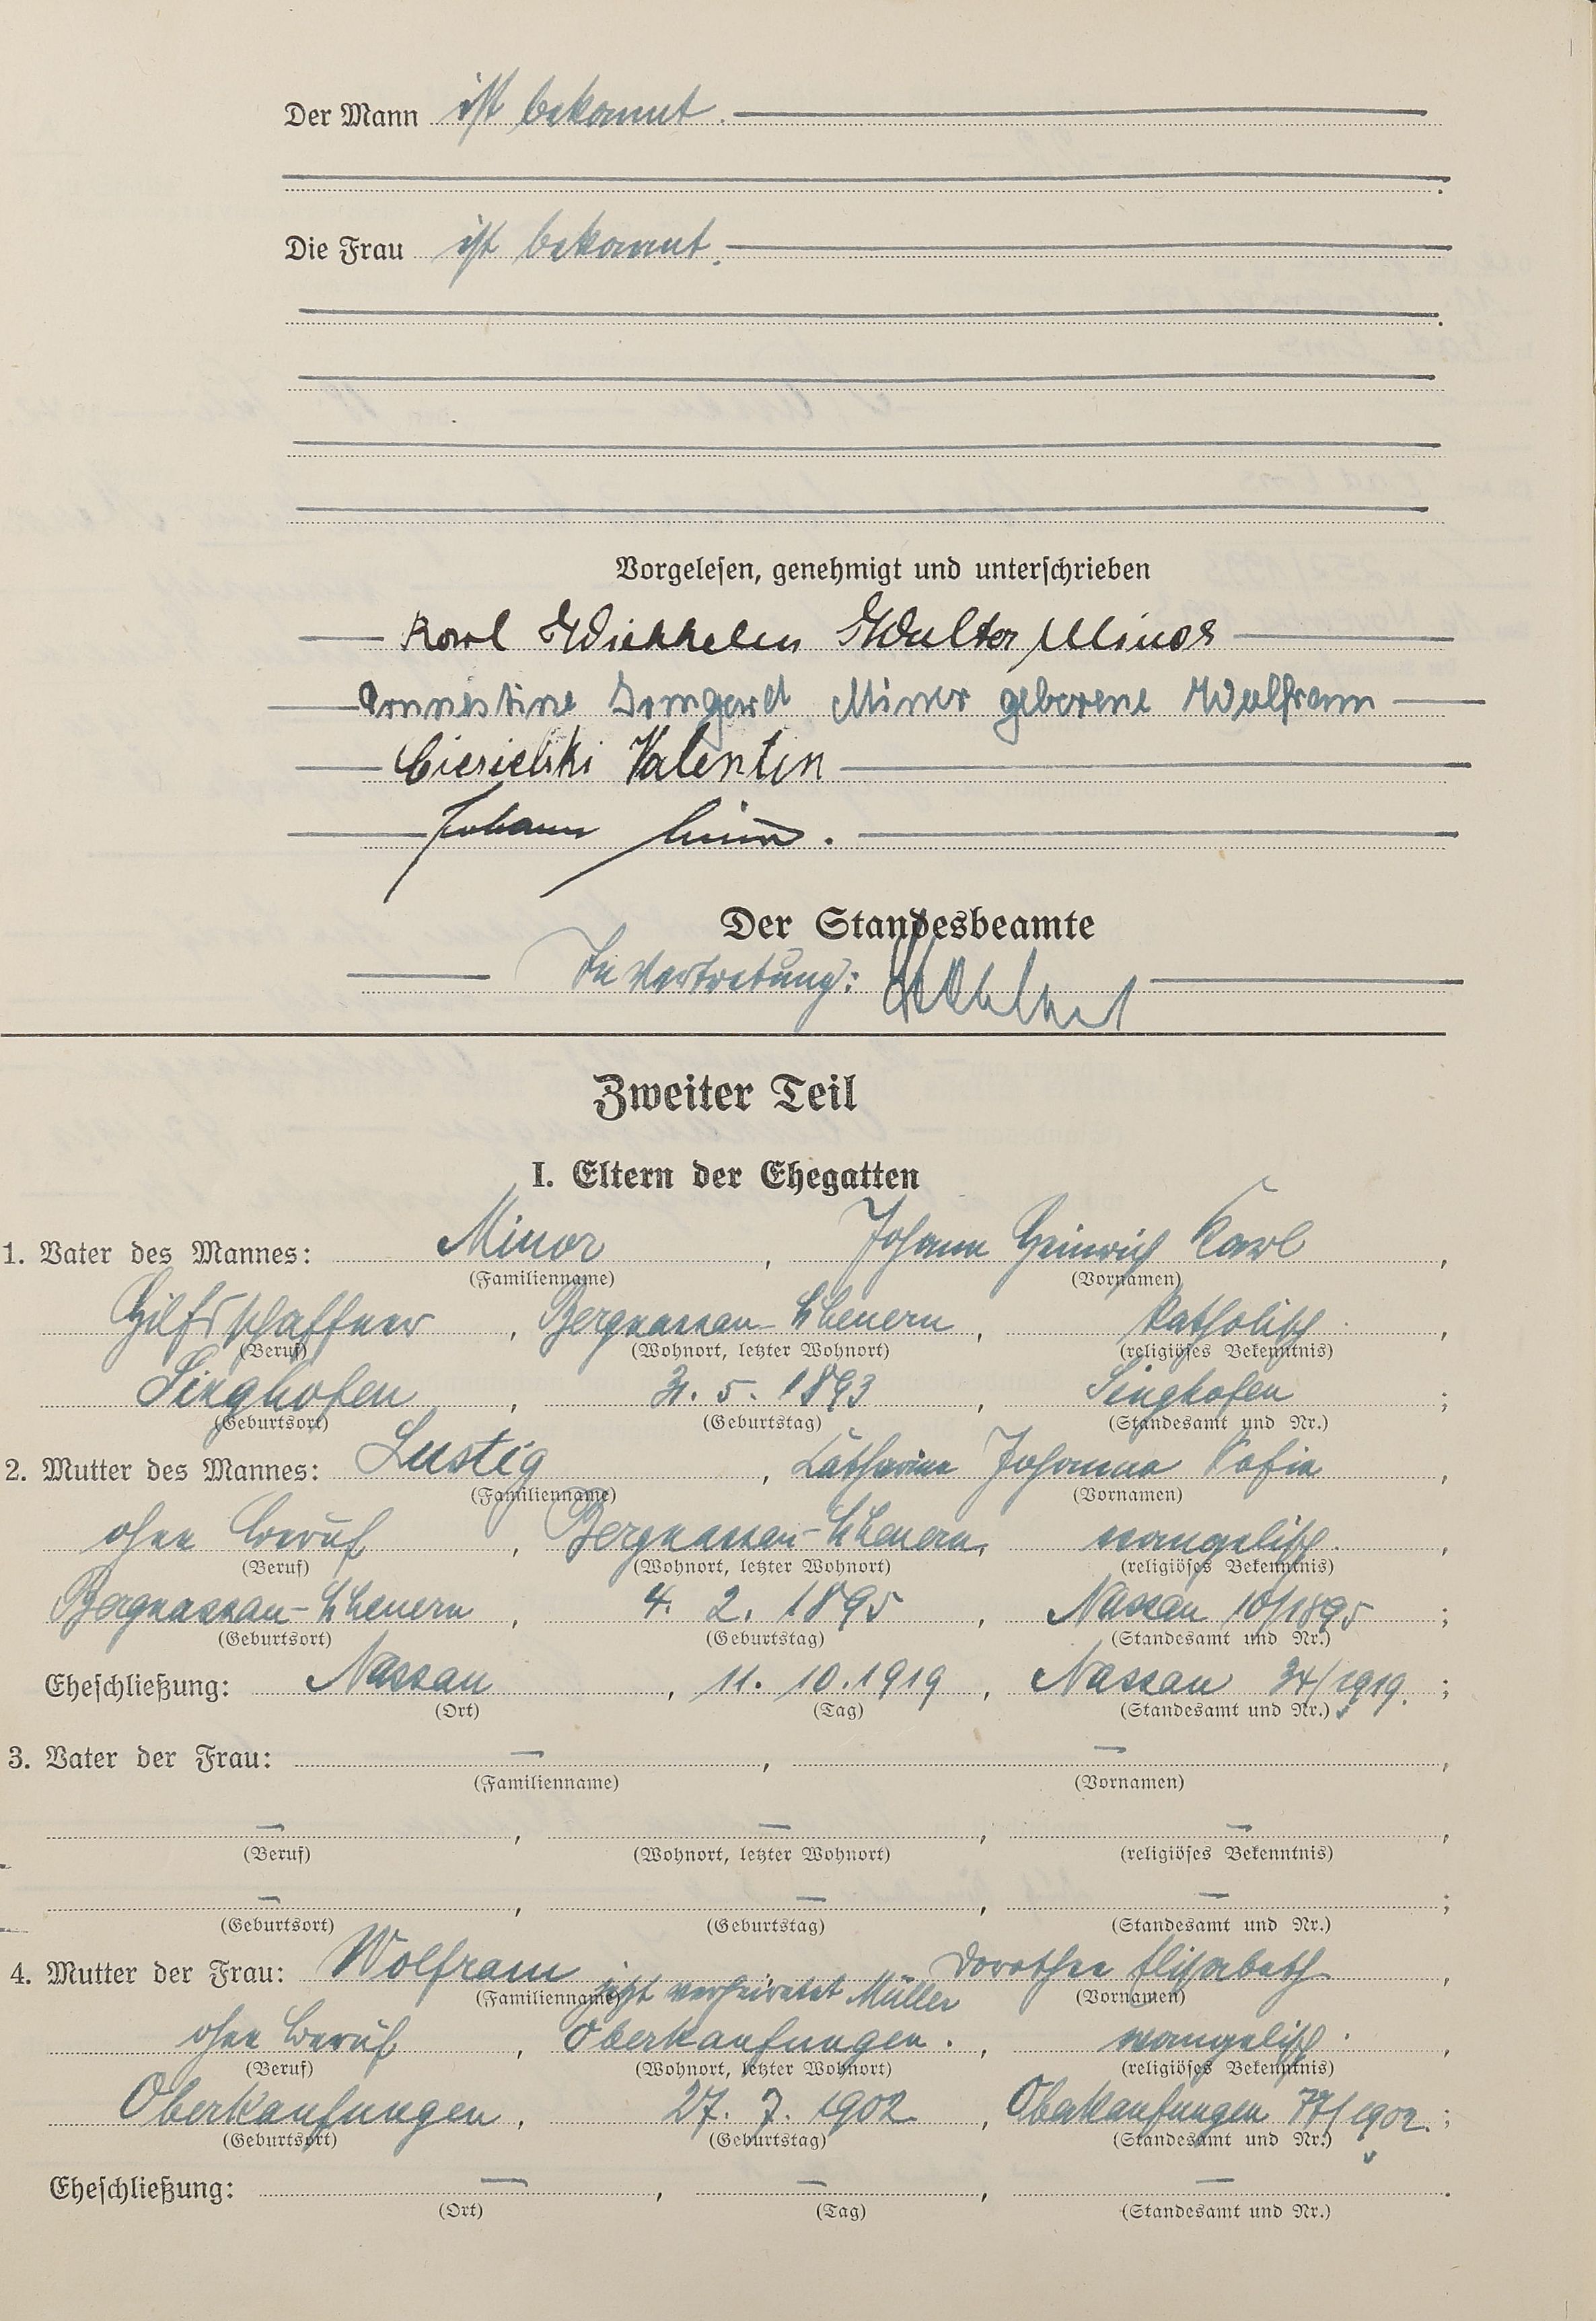 Der Mann ist bekannt.
Die Frau ist bekannt.
Vorgelesen, genehmigt und unterschrieben
Karl Wilhelm Walter Minor
Ernestine Irmgard Minor geborene Wolfram
Ciesielski Valentin
Johann Minor.
Der Standesbeamte
In Vertretung:
Zweiter Teil
I. Eltern der Ehegatten
1. Vater des Mannes: Minor, Johann Heinrich Karl,
(Familienname) (Vornamen)
Hilfsschaffner, Bergnassau-Scheuern, katholisch,
(Beruf) (Wohnort, letzter Wohnort) (religiöses Bekenntnis)
Singhofen, 31. 5. 1893, Singhofen;
(Geburtsort) (Geburtstag) (Standesamt und Nr.)
2. Mutter des Mannes: Lustig, Katharine Johanna Sofie,
(Familienname) (Vornamen)
ohne Beruf, Bergnassau-Scheuern, evangelisch,
(Beruf) (Wohnort, letzter Wohnort) (religiöses Bekenntnis)
Bergnassau-Scheuern, 4. 2. 1895, Nassau 10/1895;
(Geburtsort) (Geburtstag) (Standesamt und Nr.)
Eheschließung: Nassau, 11. 10. 1919, Nassau 34/1919.;
(Ort) (Tag) (Standesamt und Nr.)
3. Vater der Frau: —, —,
(Familienname) (Vornamen)
—, —, —,
(Beruf) (Wohnort, letzter Wohnort) (religiöses Bekenntnis)
—, —, —;
(Geburtsort) (Geburtstag) (Standesamt und Nr.)
4. Mutter der Frau: Wolfram Dorothea Elisabeth,
(Familienname) jetzt verheiratet Müller (Vornamen)
ohne Beruf, Oberkaufungen., evangelisch.,
(Beruf) (Wohnort, letzter Wohnort) (religiöses Bekenntnis)
Oberkaufungen, 27. 7. 1902, Oberkaufungen 77/1902.;
(Geburtsort) (Geburtstag) (Standesamt und Nr.)
Eheschließung: —, —, —.
(Ort) (Tag) (Standesamt und Nr.)